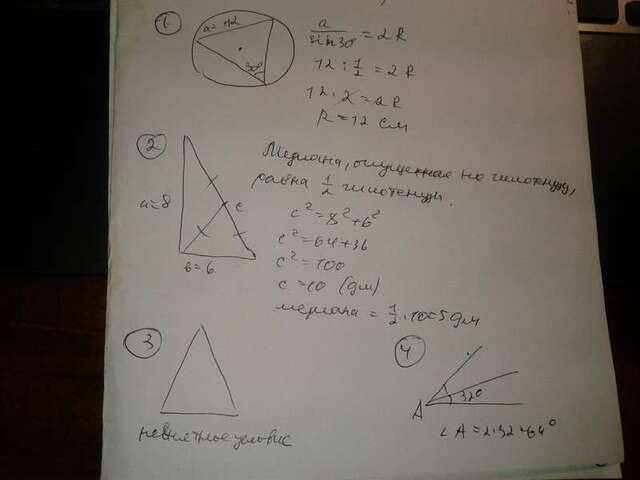 1
a = 12
30°
a / sin 30° = 2R
12 : 1/2 = 2R
12 · 2 = 2R
R = 12 см
2
a = 8
c
в = 6
Медиана, опущенная на гипотенузу,
равна 1/2 гипотенузы.
c² = 8² + 6²
c² = 64 + 36
c² = 100
c = 10 (дм)
медиана = 1/2 · 10 = 5 дм
3
невнятное условие
4
A
32°
∠A = 2·32 = 64°